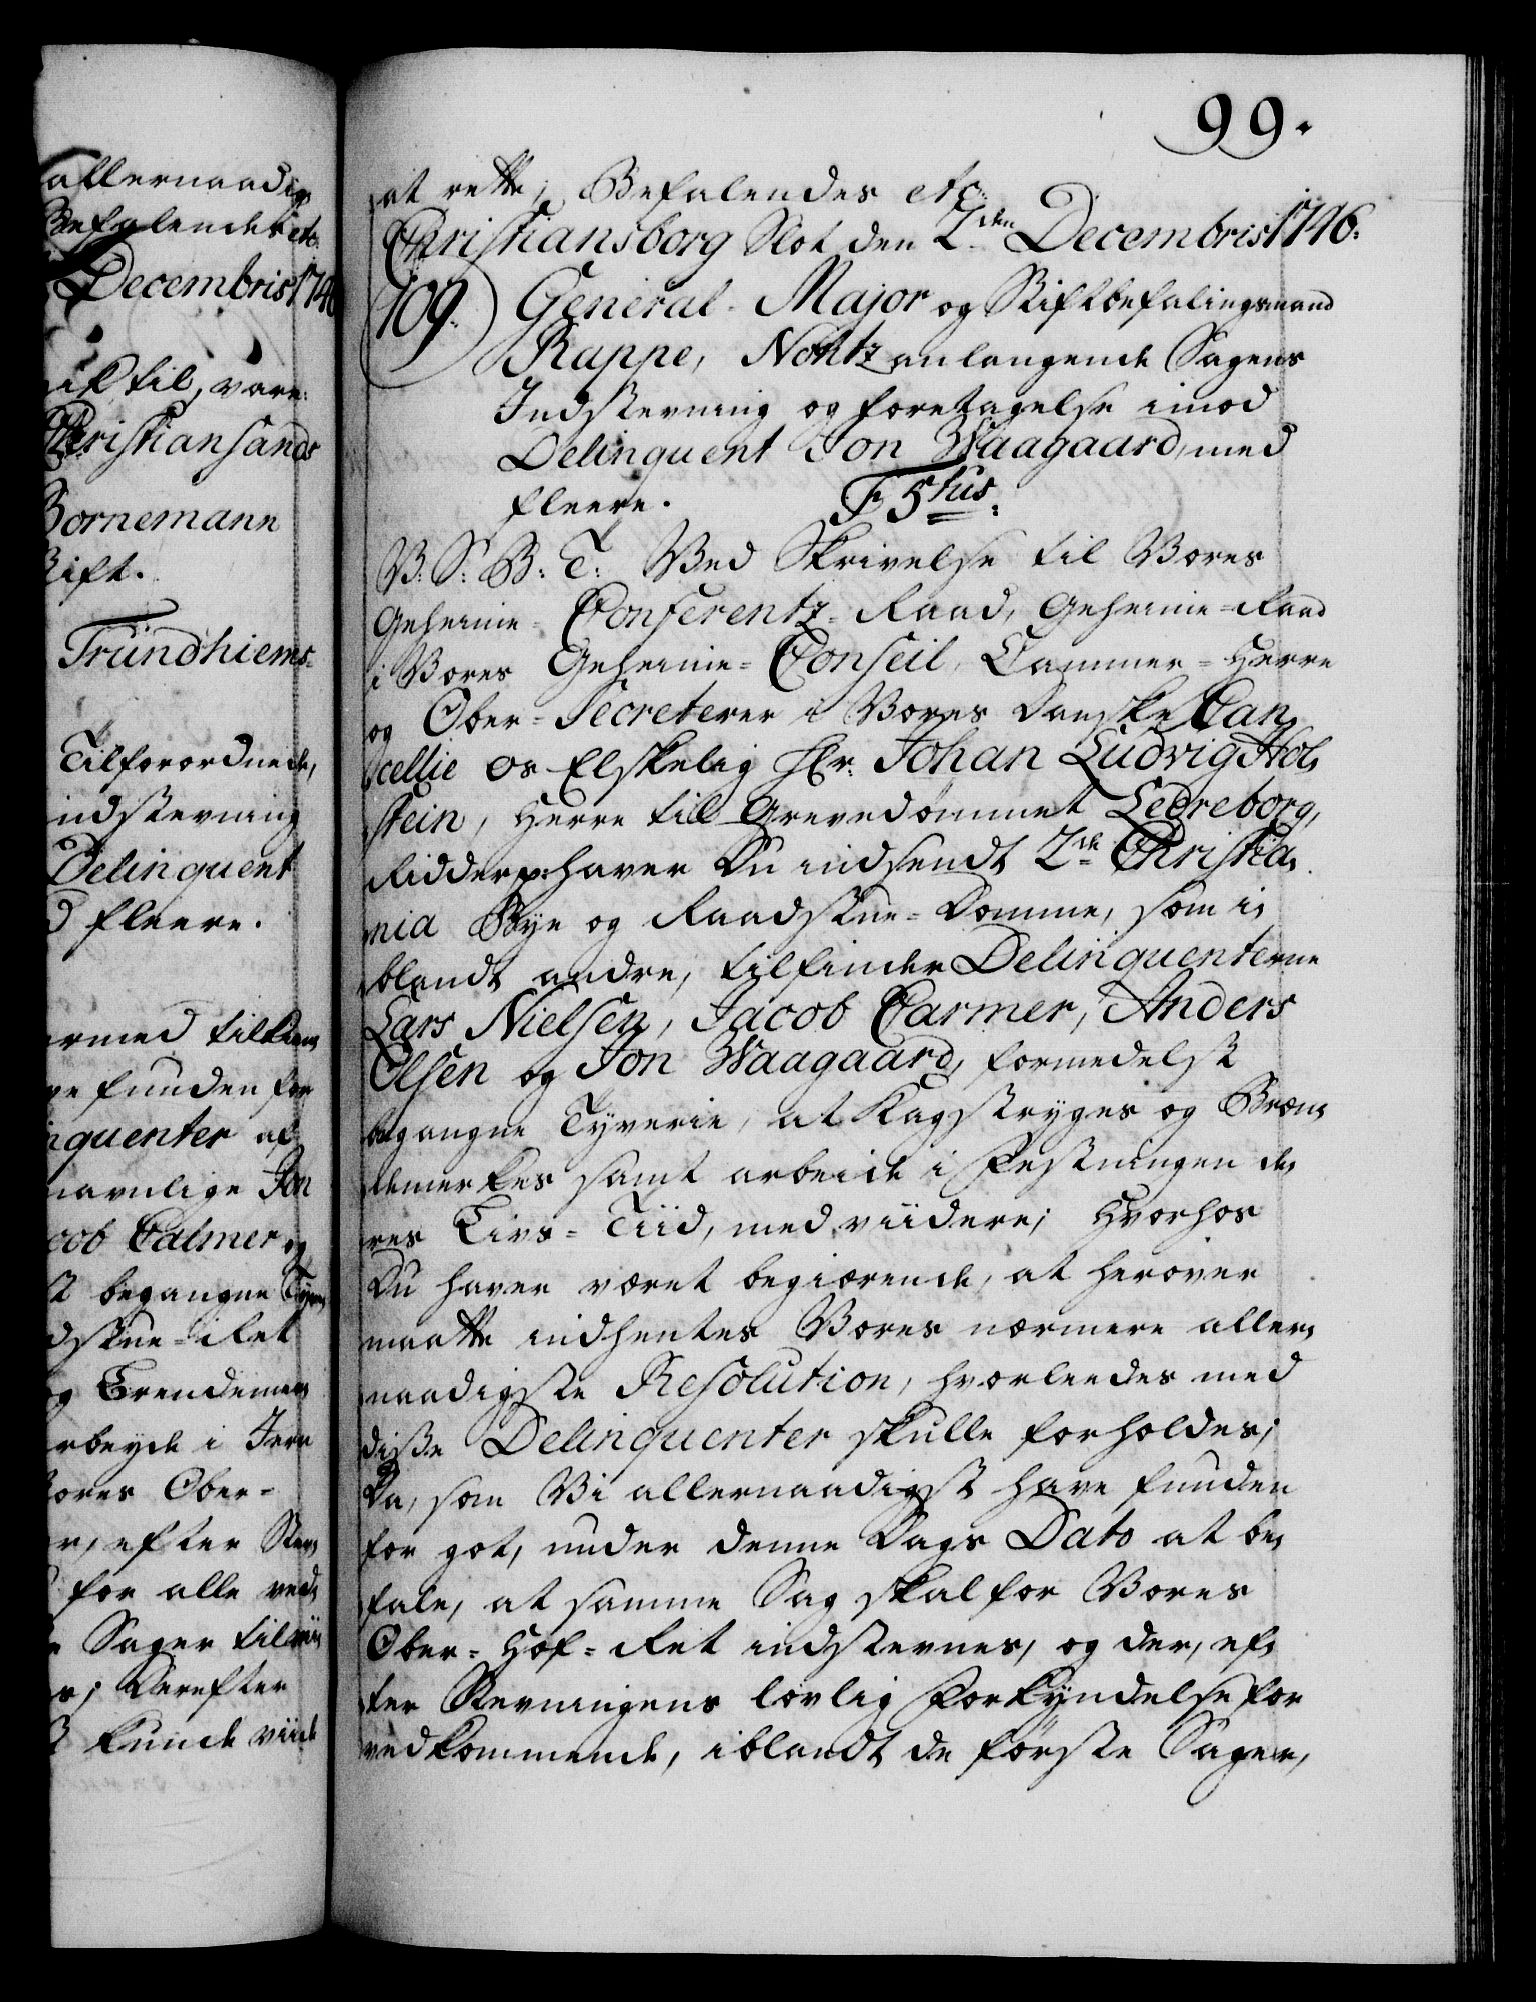 allernaadig
Befalendes etc:
Decembris 1746
til, være:
Christiansands
Bornemann
Stift.
Trundhiems-
Tilforordnede,
indstevning
Delinquent
d fleere.
funden for
quenter af
navnlige Jon
cob Calmer og
begangne Tyve
dstue-Ret
og Brendemer
rbeyde i Jern
Vores Ober-
r, efter Stev
for alle ved
Sager til
r; Derefter
kunde viid
99.
at rette; Befalendes etc:
Christiansborg Slot den 2den Decembris 1746.
109. General-Major og Stiftbefalingsmand
Rappe, Nontz anlangende Sagens
Indstevning og foretagelse imod
Delinquent Jon Waagaard, med
fleere. F 5tus.
V: S: B: T: Ved Skrivelse til Vores
Geheime-Conferentz-Raad, Geheime-Raad
i Vores Geheime-Conseil, Cammer-Herre
og Ober-Secreterer i Vores Danske Can,
cellie Os Elskelig Hr: Johan Ludvig Hol,
stein, Herre til Grevedømmet Ledreborg,
Ridder p: haver Du indsendt 2de Christia,
nia Bye og Raadstue-Domme, som i,
blandt andre, tilfinder Delinquenterne
Lars Nielsen, Jacob Carmer, Anders
Olsen og Jon Waagaard, formedelst
begangne Tyverie, at Kagstryges og Bræn,
demerkes samt arbeide i Festningen de,
res Livs-Tiid, med viidere; Hvorhos
Du haver været begiærende, at herover
maatte indhentes Vores nærmere aller,
naadigste Resolution, hvorleedes med
disse Delinquenter skulle forholdes;
Da, som Vi allernaadigst have funden
for got, under denne Dags Dato at be,
fale, at samme Sag skal for Vores
Ober-Hof-Ret indstevnes, og der, ef,
ter Stevningens lovlig Forkyndelse for
vedkommende, iblandt de første Sager,